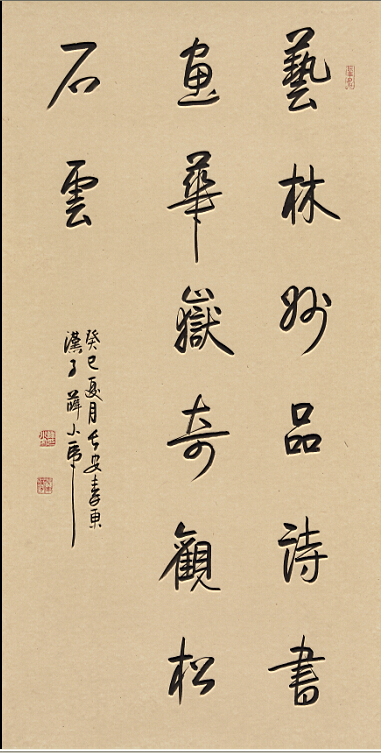 藝林妙品詩書
畫華嶽奇觀松
石雲
癸巳夏月長安秦東
漢子薛小虎